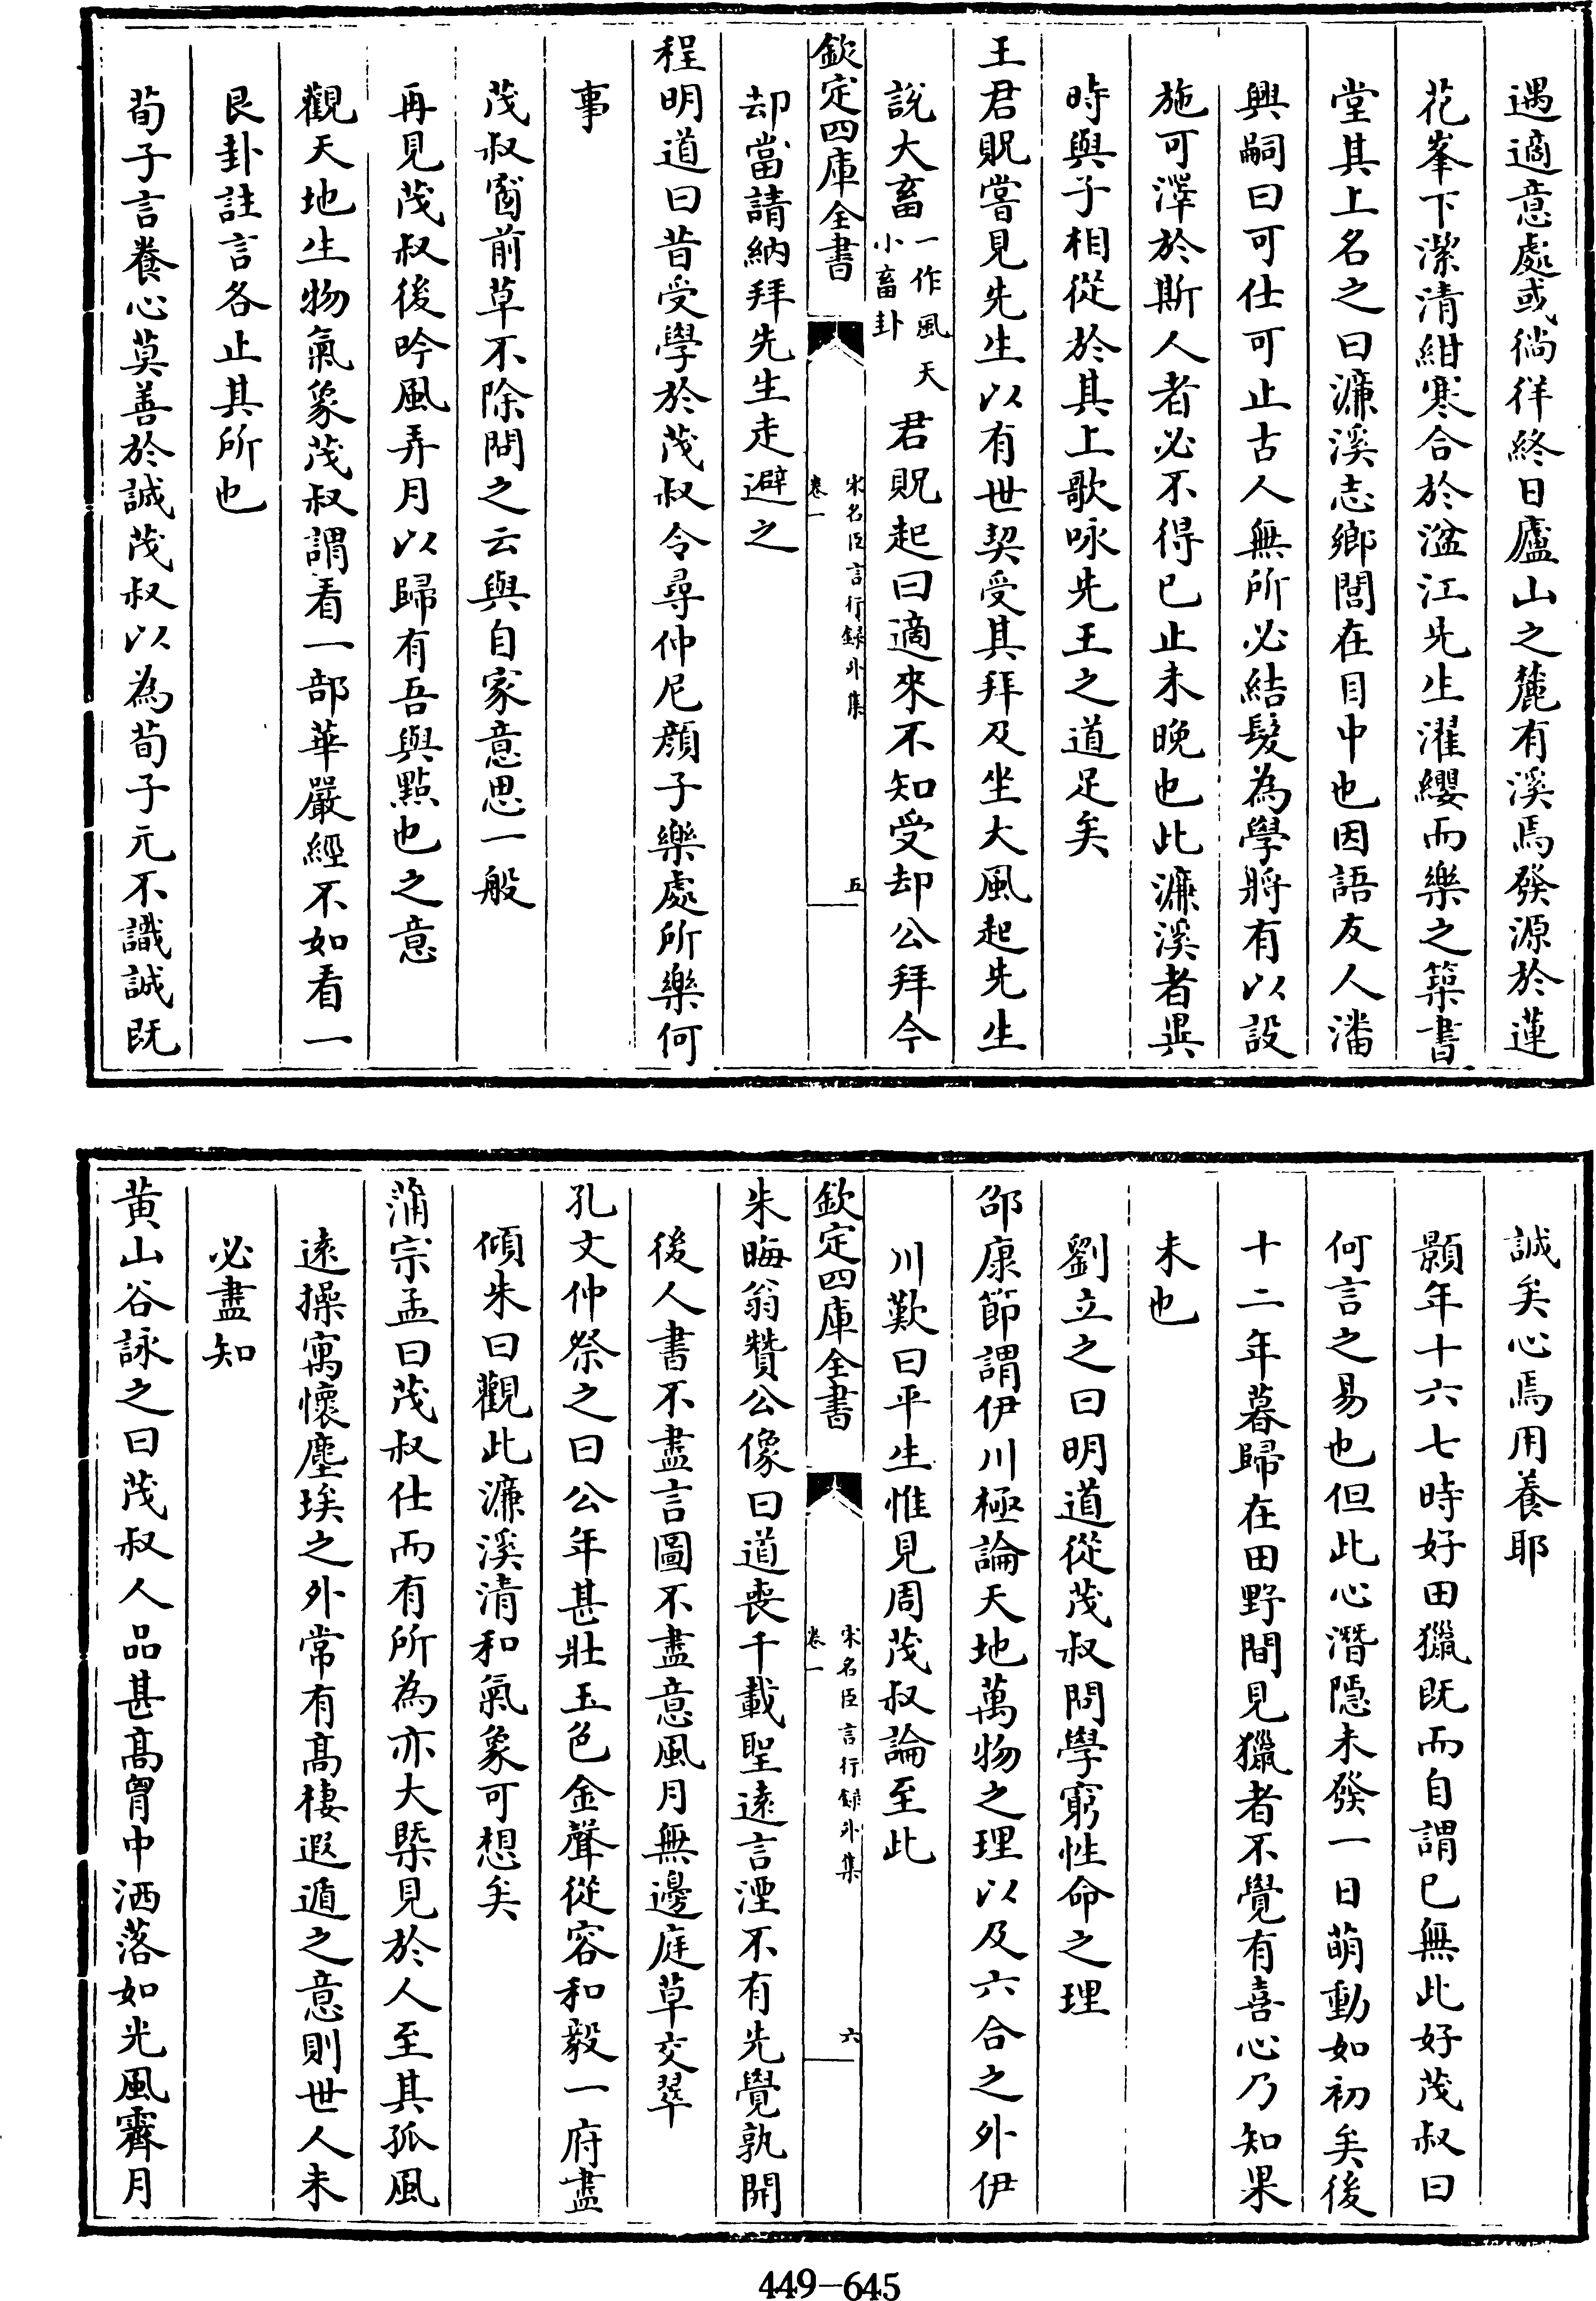 遇適意處或徜徉終日廬山之麓有溪焉發源於蓮
花峯下潔清紺寒合於湓江先生濯纓而樂之築書
堂其上名之曰濂溪志鄉閭在目中也因語友人潘
興嗣曰可仕可止古人無所必結髮為學將有以設
施可澤於斯人者必不得已止未晚也此濂溪者異
時與子相從於其上歌咏先王之道足矣
王君貺嘗見先生以有世契受其拜及坐大風起先生
說大畜一作風天小畜卦君貺起曰適來不知受却公拜今
欽定四庫全書
宋名臣言行録外集
卷一
五
却當請納拜先生走避之
程明道曰昔受學於茂叔令尋仲尼顔子樂處所樂何
事
茂叔窗前草不除問之云與自家意思一般
再見茂叔後吟風弄月以歸有吾與點也之意
觀天地生物氣象茂叔謂看一部華嚴經不如看一
艮卦註言各止其所也
荀子言養心莫善於誠茂叔以為荀子元不識誠既
誠矣心焉用養耶
顥年十六七時好田獵既而自謂已無此好茂叔曰
何言之易也但此心潛隱未發一日萌動如初矣後
十二年暮歸在田野間見獵者不覺有喜心乃知果
未也
劉立之曰明道從茂叔問學窮性命之理
邵康節謂伊川極論天地萬物之理以及六合之外伊
川歎曰平生惟見周茂叔論至此
欽定四庫全書
宋名臣言行録外集
卷一
六
朱晦翁贊公像曰道喪千載聖遠言湮不有先覺孰開
後人書不盡言圖不盡意風月無邊庭草交翠
孔文仲祭之曰公年甚壯玉色金聲從容和毅一府盡
傾朱曰觀此濂溪清和氣象可想矣
蒲宗孟曰茂叔仕而有所為亦大槩見於人至其孤風
遠操寓懷塵埃之外常有高棲遐遁之意則世人未
必盡知
黃山谷詠之曰茂叔人品甚高胷中洒落如光風霽月
449-645